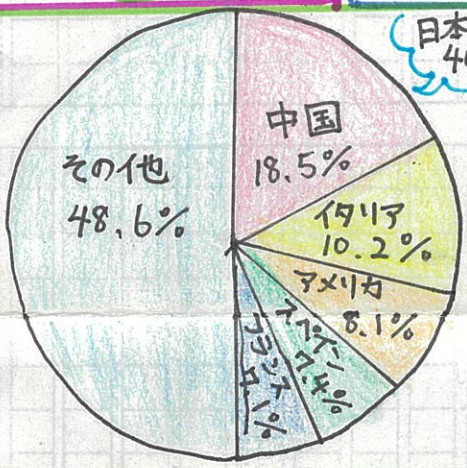 日本
中国
18.5%
イタリア
10.2%
アメリカ
8.1%
スペイン
7.4%
フランス
7.1%
その他
48.6%